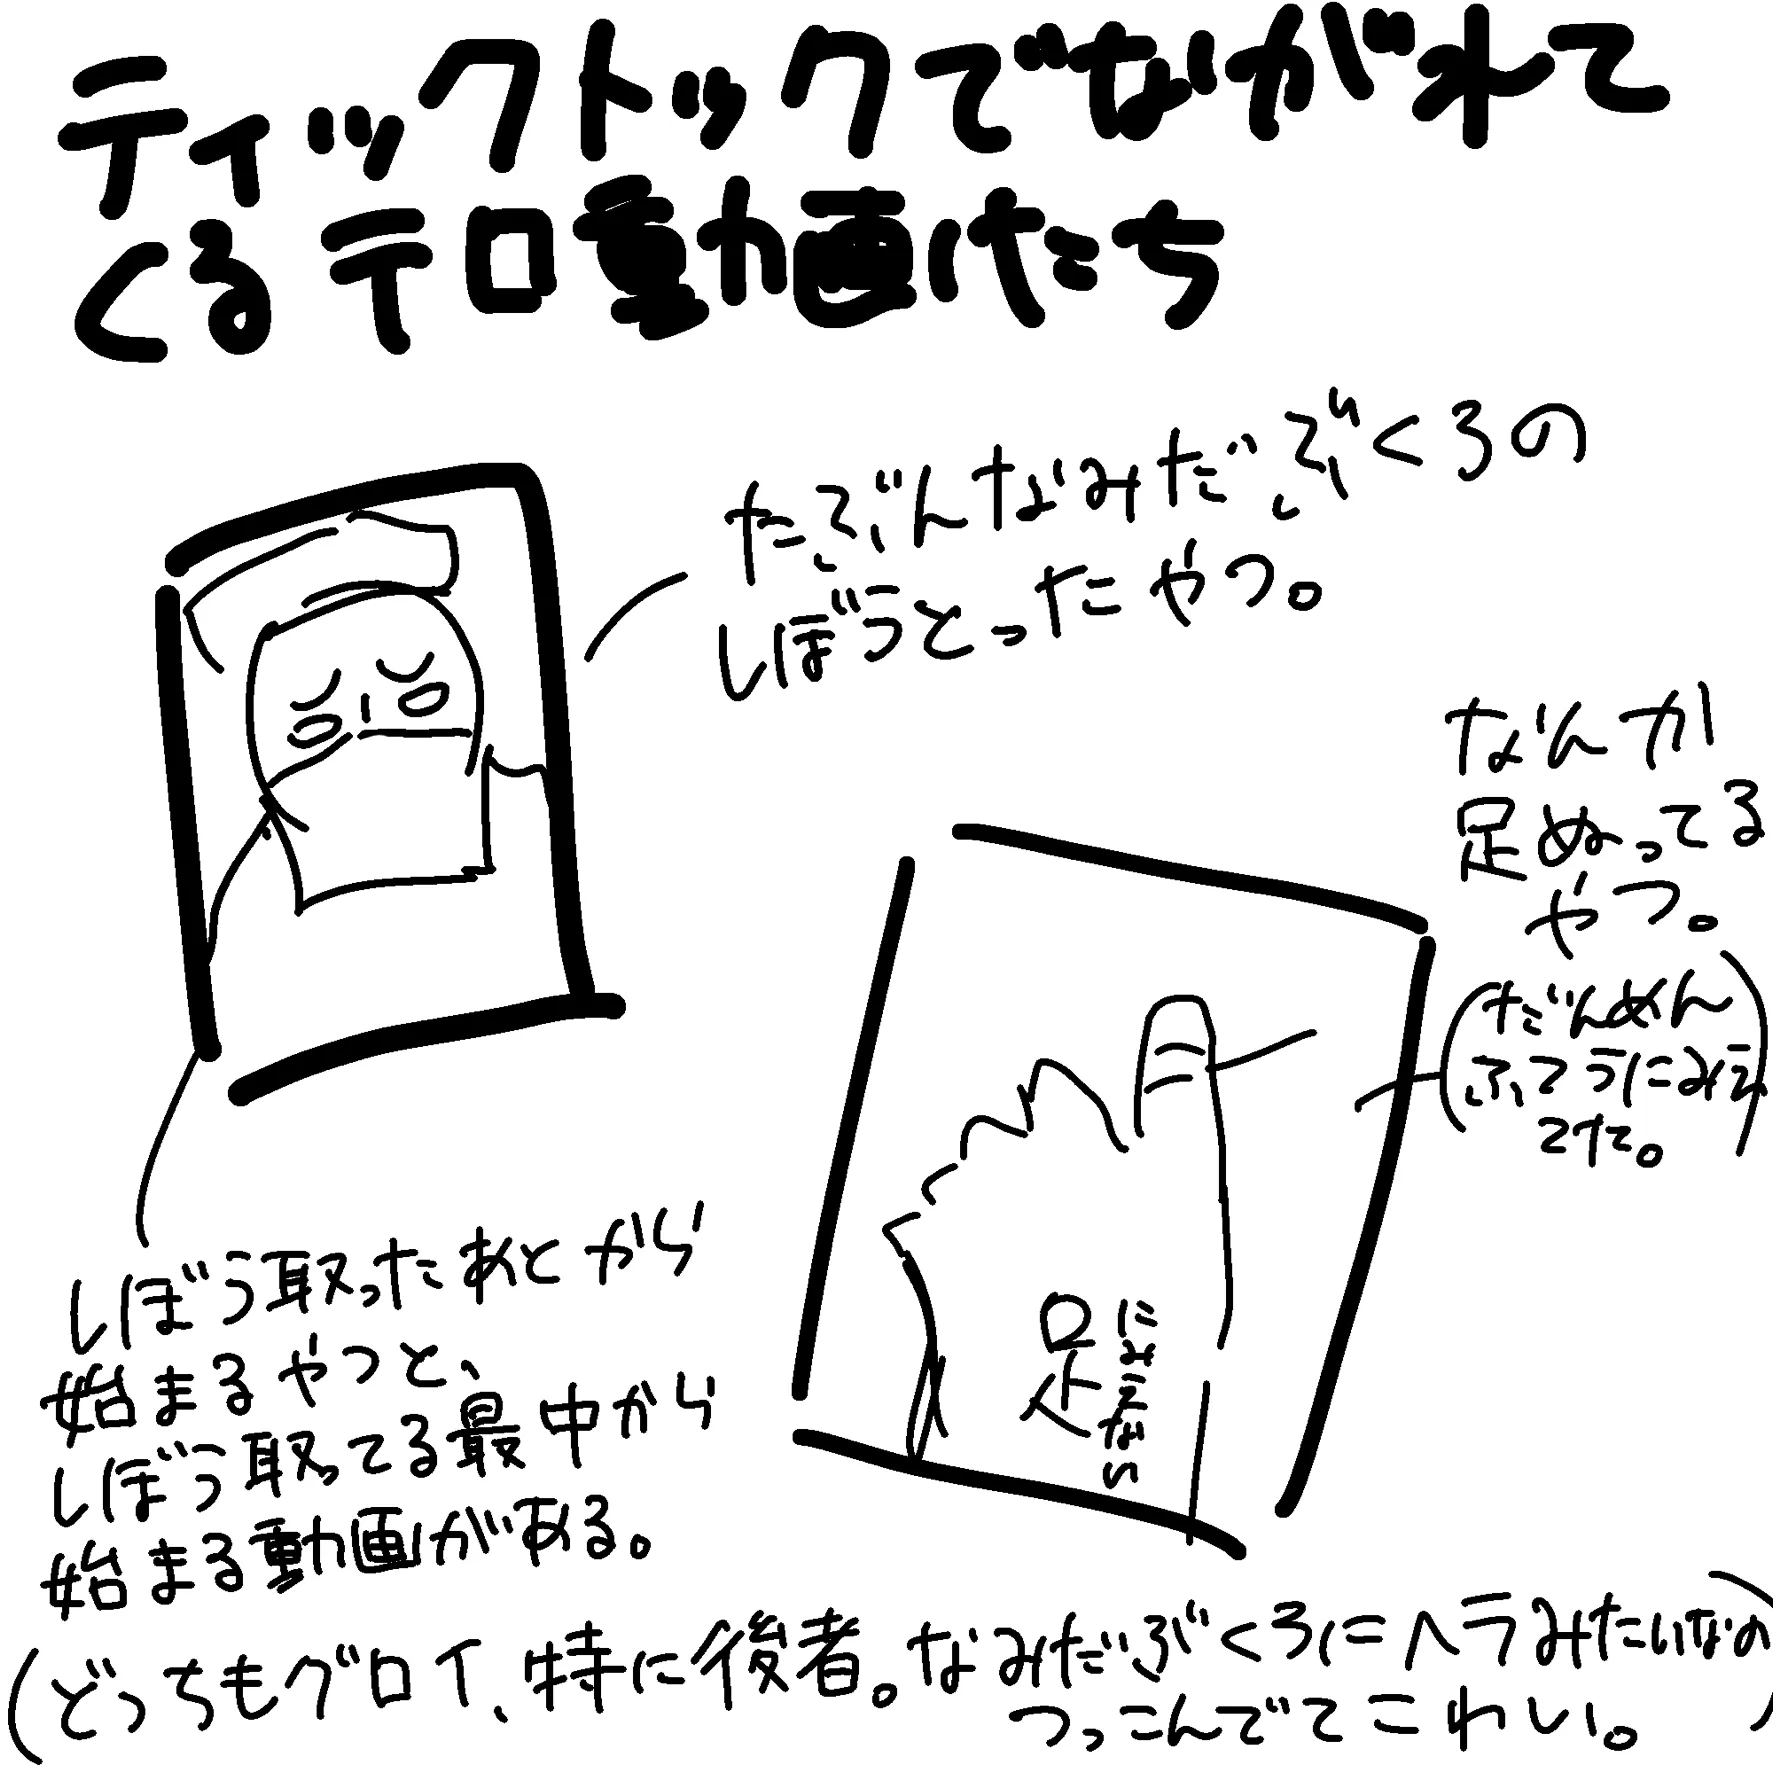 ティックトックでながれて
くるテロ動画たち
たぶんなみだぶくろの
しぼうとったやつ。
なんか
足ぬってる
やつ。
(だんめん
ふつうにみえ
てた。)
しぼう取ったあとから
始まるやつと、
しぼう取ってる最中から
始まる動画がある。
足
にみえない
(どっちもグロイ、特に後者。なみだぶくろにヘラみたいなの
つっこんでてこわい。)